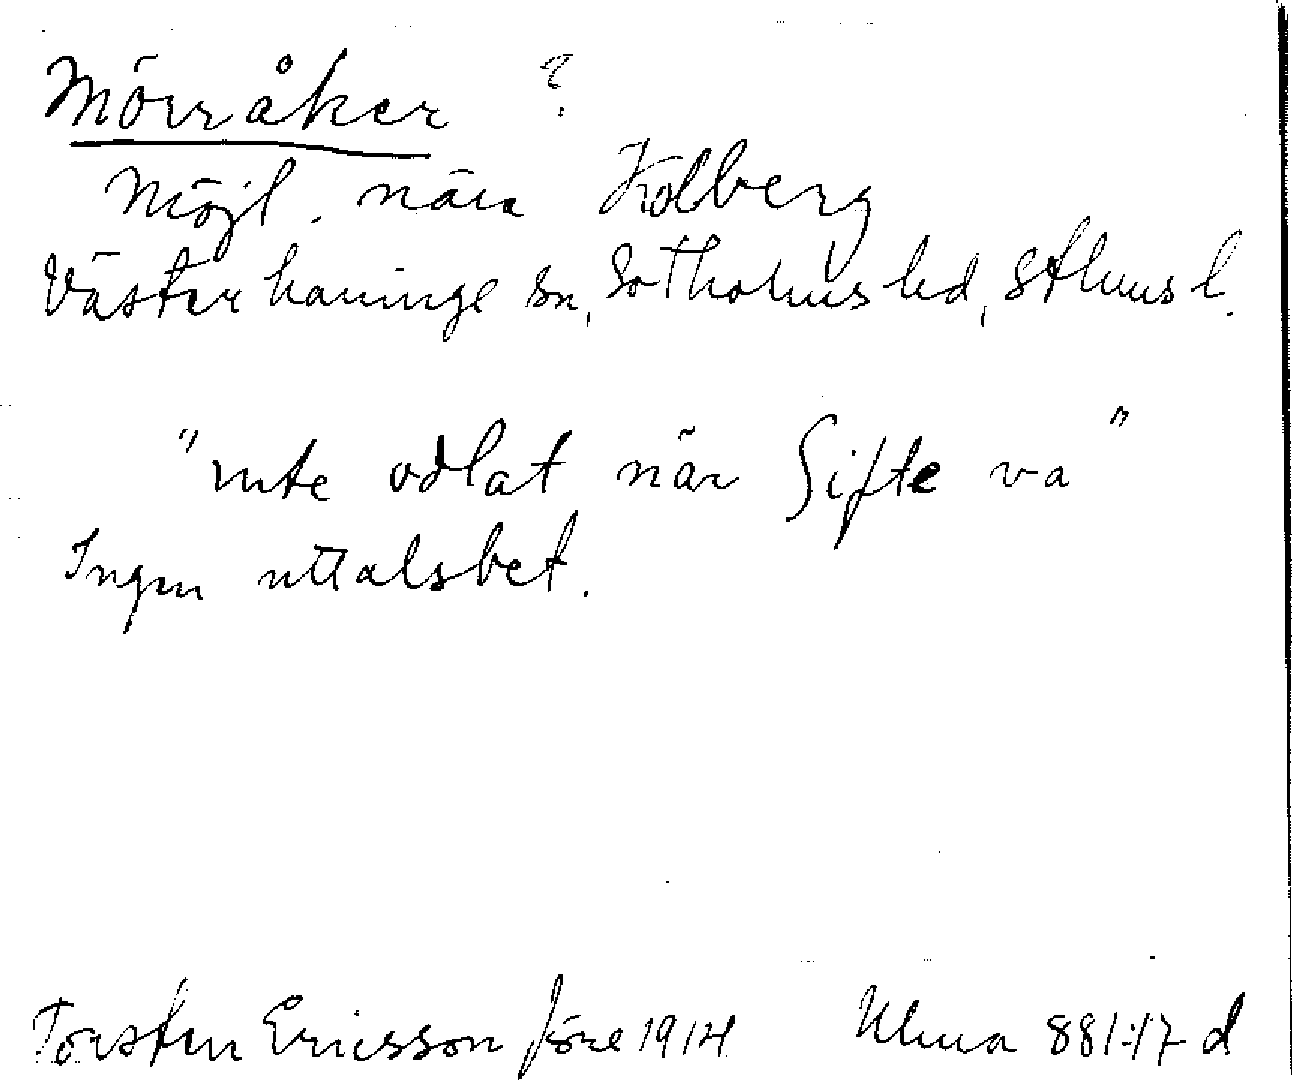 Mörråker ?
Möjl. nära Kolberg
Västerhaninge sn, Sotholms hd, Sthlms l.
"inte odlat när Sifte va"
Ingen uttalsbet.
Torsten Ericsson före 1914 Ulma 881:17 d